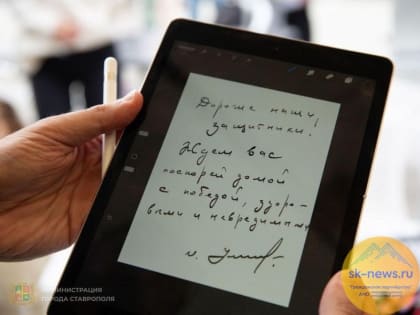 Дороже наши,
защитники!
Ждем вас
поскорей домой
с победой, здоро-
выми и невредимыми
АДМИНИСТРАЦИЯ
ГОРОДА СТАВРОПОЛЯ
sk-news.ru